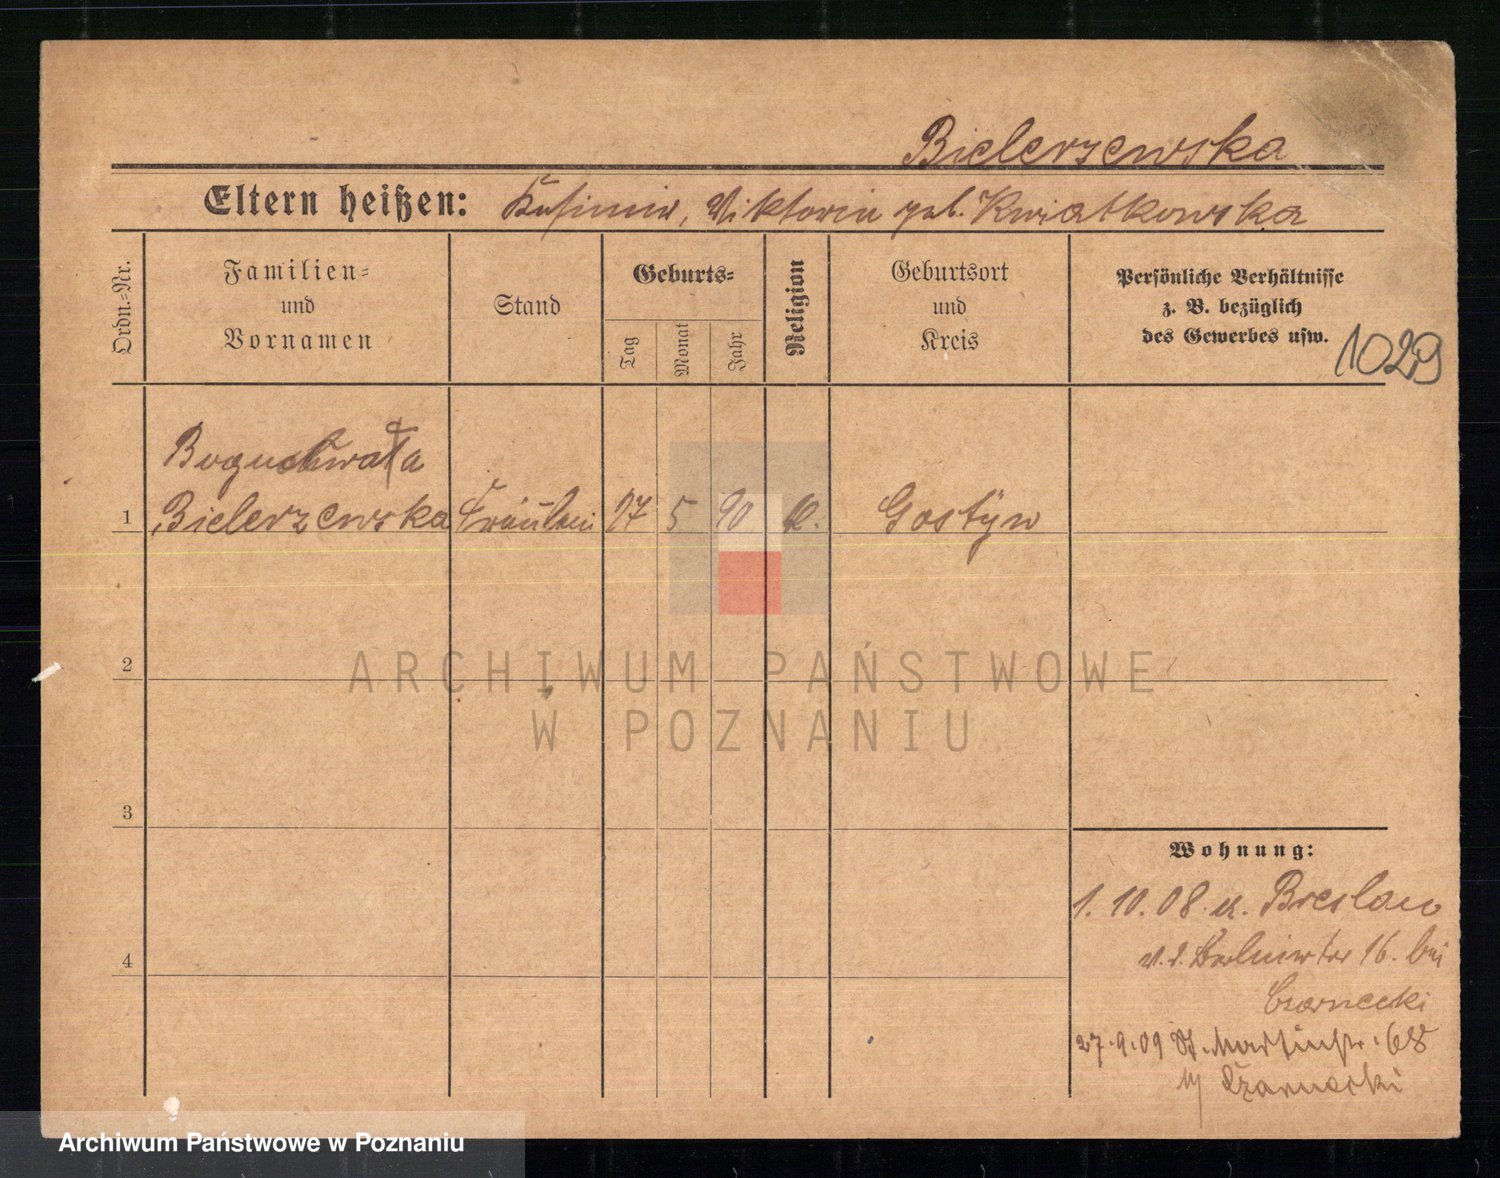 Bielerzewska
Eltern heißen: Kasimir, Viktoria geb. Kwiatkowska
Ordn.-Nr.
Familien-
und
Vornamen
Stand
Geburts-
Tag
Monat
Jahr
Religion
Geburtsort
und
Kreis
Persönliche Verhältnisse
z. B. bezüglich
des Gewerbes usw.
1029
Boguchwała
1 Bielerzewska Fräulein 27 5 90 k. Gostyn
ARCHIWUM PAŃSTWOWE
W POZNANIU
2
3
4
Wohnung:
1. 10. 08 Breslau
v. d. Berlinertor 16. bei
Czarnecki
27.9.09 St. Martinstr. 68
b/ Czarnecki
Archiwum Państwowe w Poznaniu